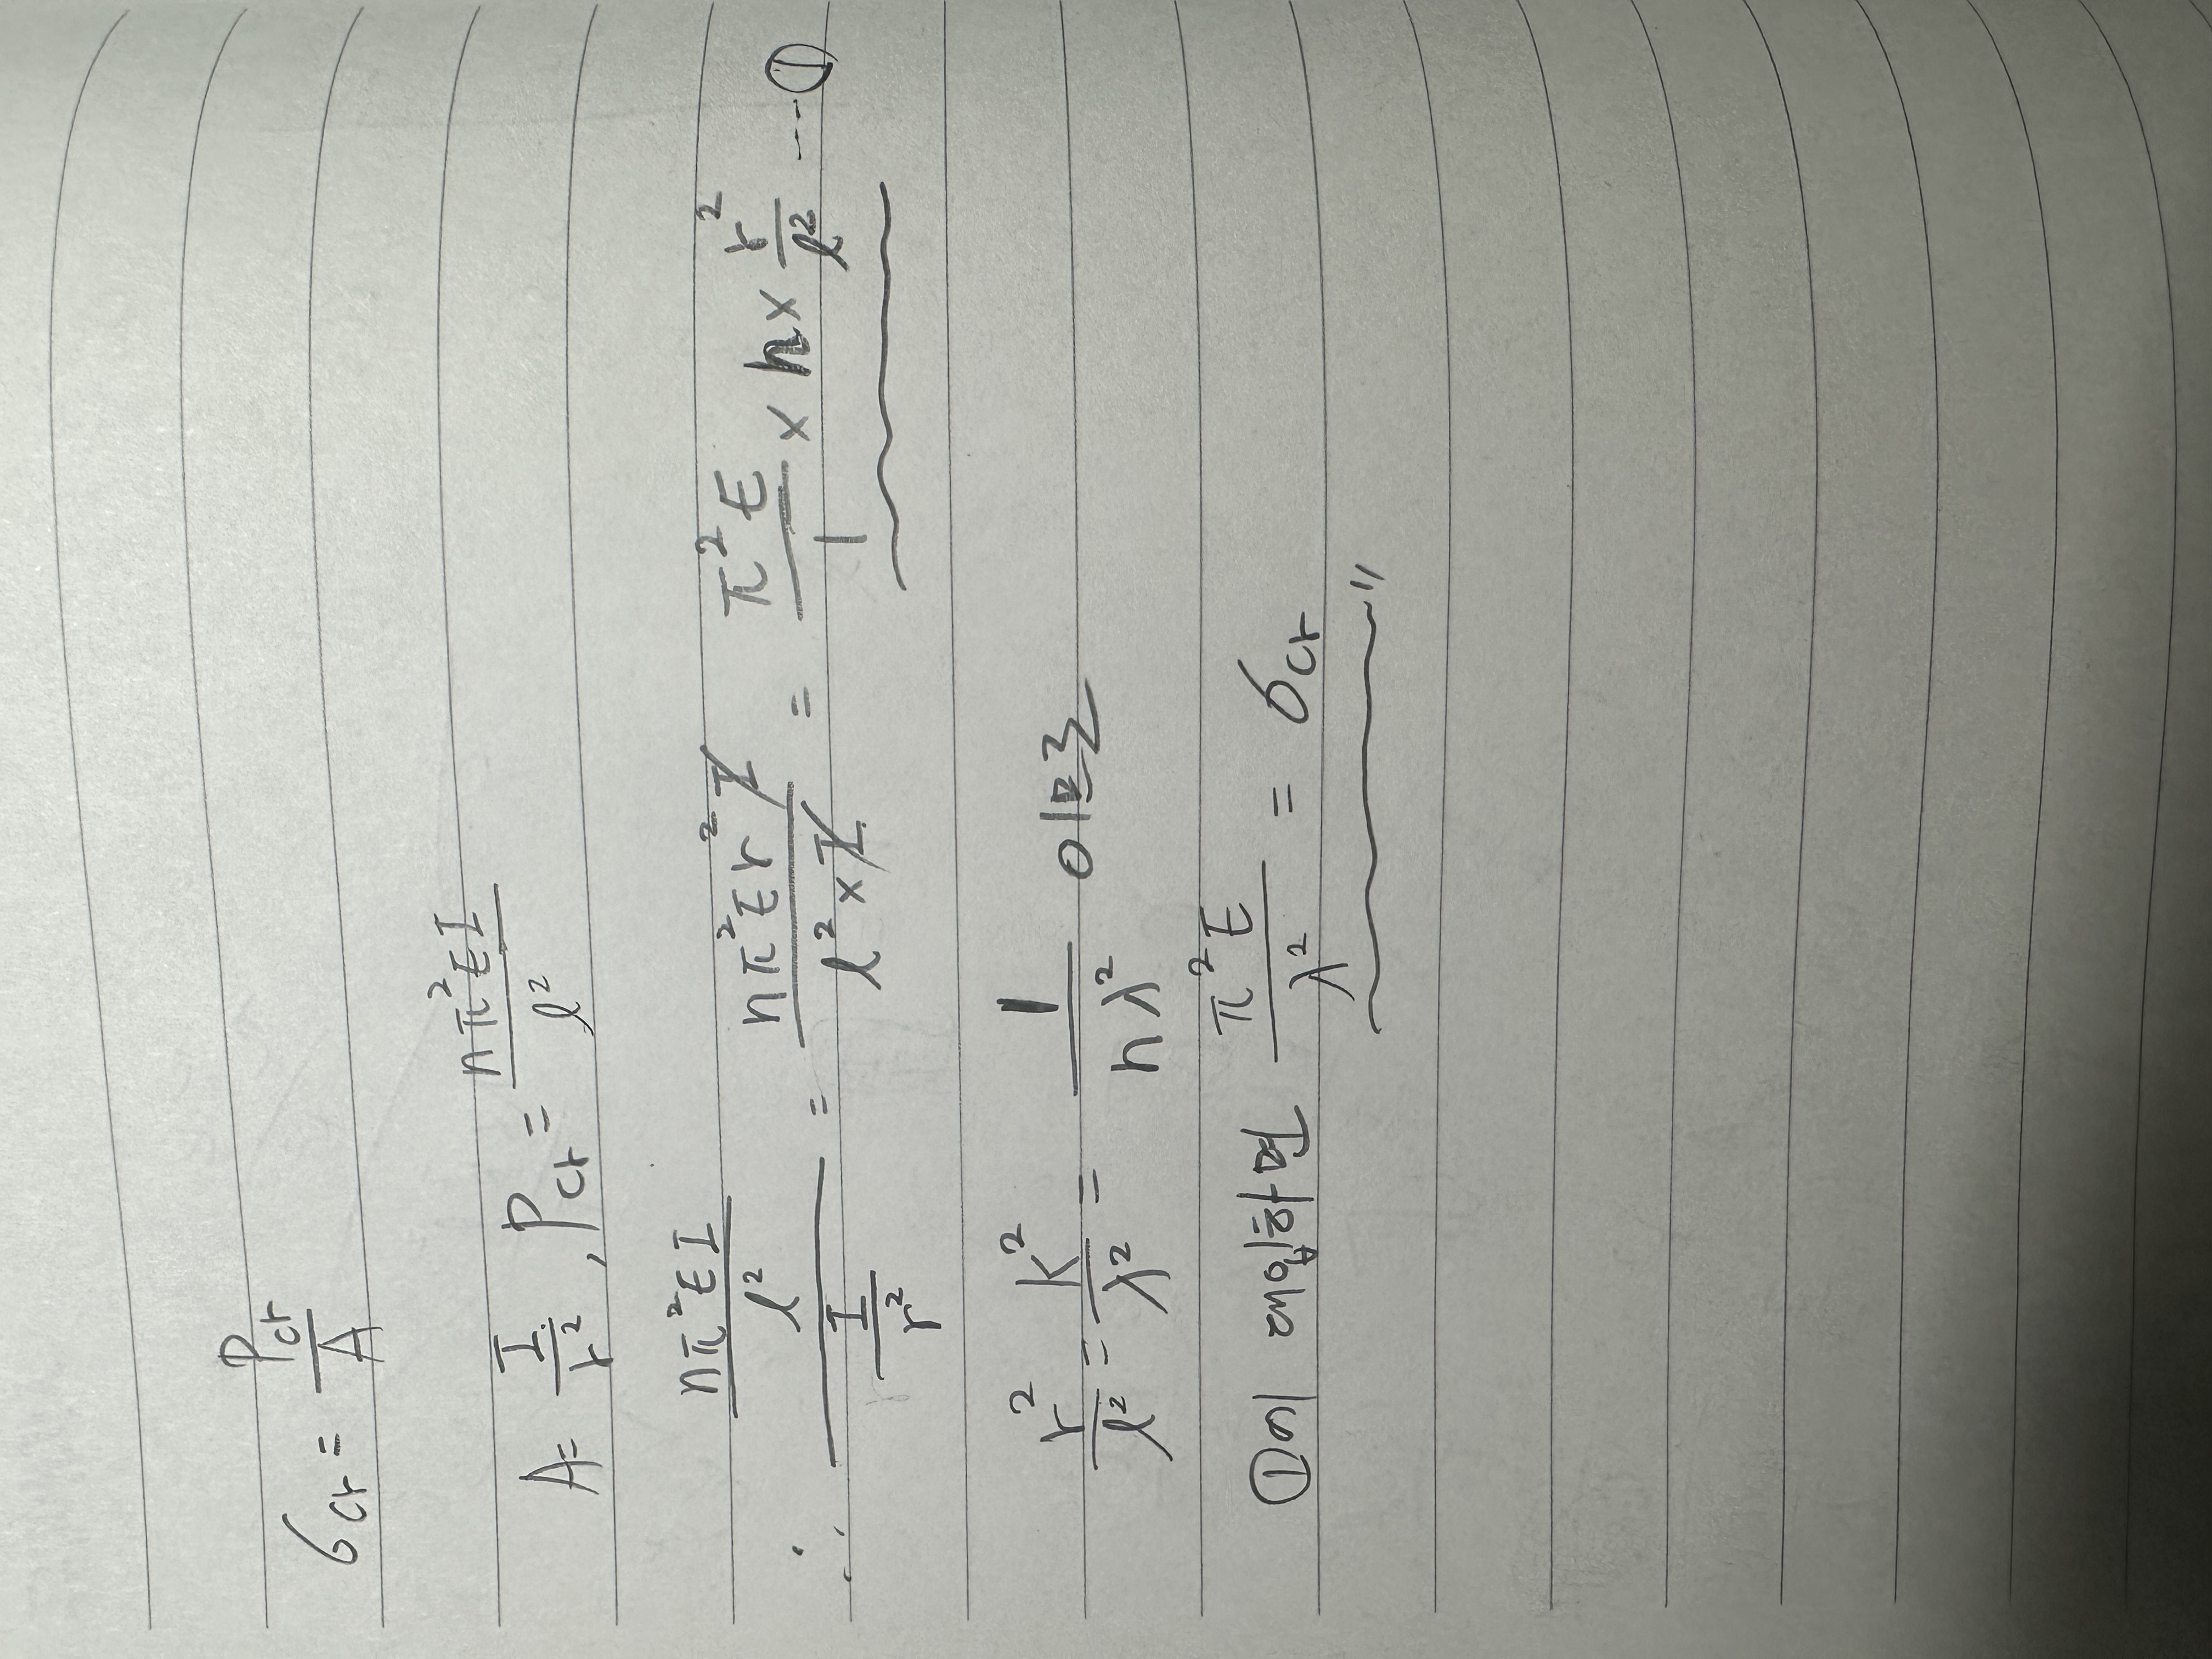 σcr = Pcr/A
A = I/r², Pcr = nπ²EI/l²
∴ (nπ²EI/l²)/(I/r²) = nπ²Er²I/(l²×I) = π²E/1 × n × r²/l² ---①
r²/l² = k²/λ² = 1/nλ² 이므로
①에 대입하면 π²E/λ² = σcr〃